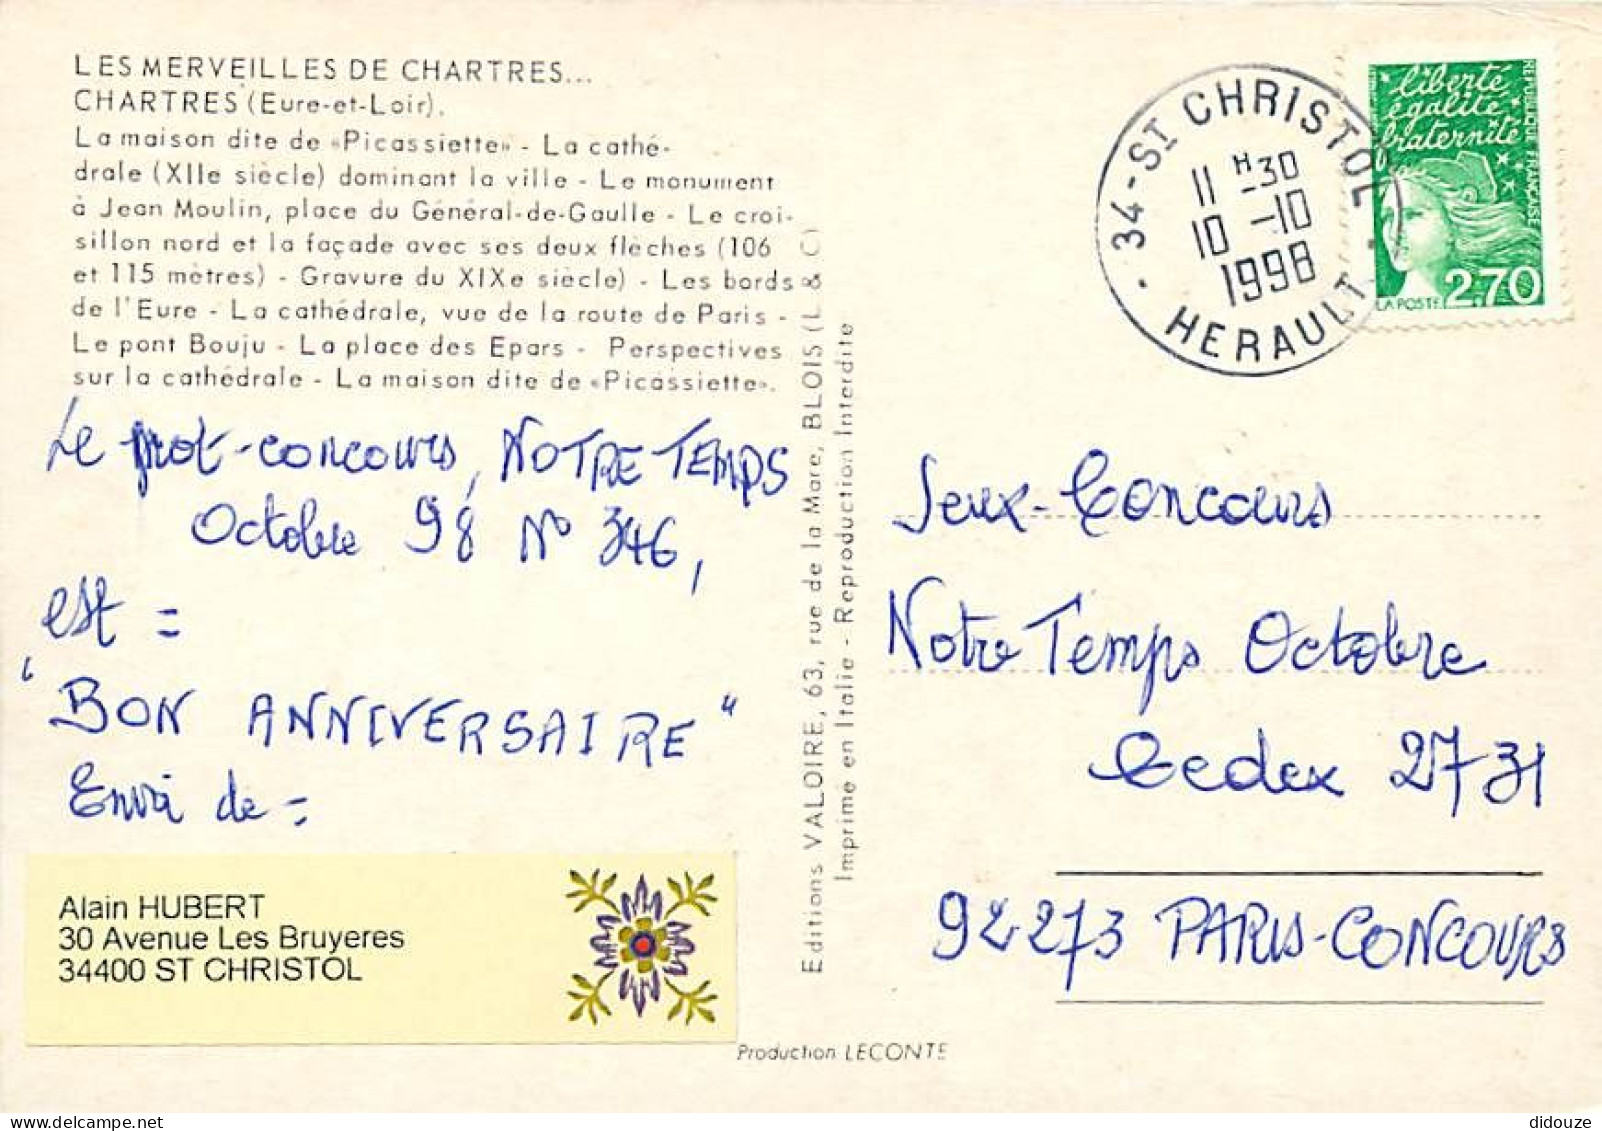 LES MERVEILLES DE CHARTRES...
CHARTRES (Eure-et-Loir).
La maison dite de «Picassiette» - La cathé-
drale (XIIe siècle) dominant la ville - Le monument
à Jean Moulin, place du Général-de-Gaulle - Le croi-
sillon nord et la façade avec ses deux flèches (106
et 115 mètres) - Gravure du XIXe siècle) - Les bords
de l'Eure - La cathédrale, vue de la route de Paris -
Le pont Bouju - La place des Epars - Perspectives
sur la cathédrale - La maison dite de «Picassiette».
Le mot-concours, NOTRE TEMPS
Octobre 98 N° 346,
est =
"BON ANNIVERSAIRE"
Envoi de =
Alain HUBERT
30 Avenue Les Bruyeres
34400 ST CHRISTOL
Editions VALOIRE, 63, rue de la Mare, BLOIS (L & C)
Imprimé en Italie - Reproduction Interdite
Production LECONTE
34 - ST CHRISTOL
11 H -30
10 -10
1998
HERAULT
liberté
égalité
fraternité
REPUBLIQUE FRANCAISE
LA POSTE 2,70
Jeux-Concours
Notre Temps Octobre
Cedex 2731
92273 PARIS-CONCOURS
didouze